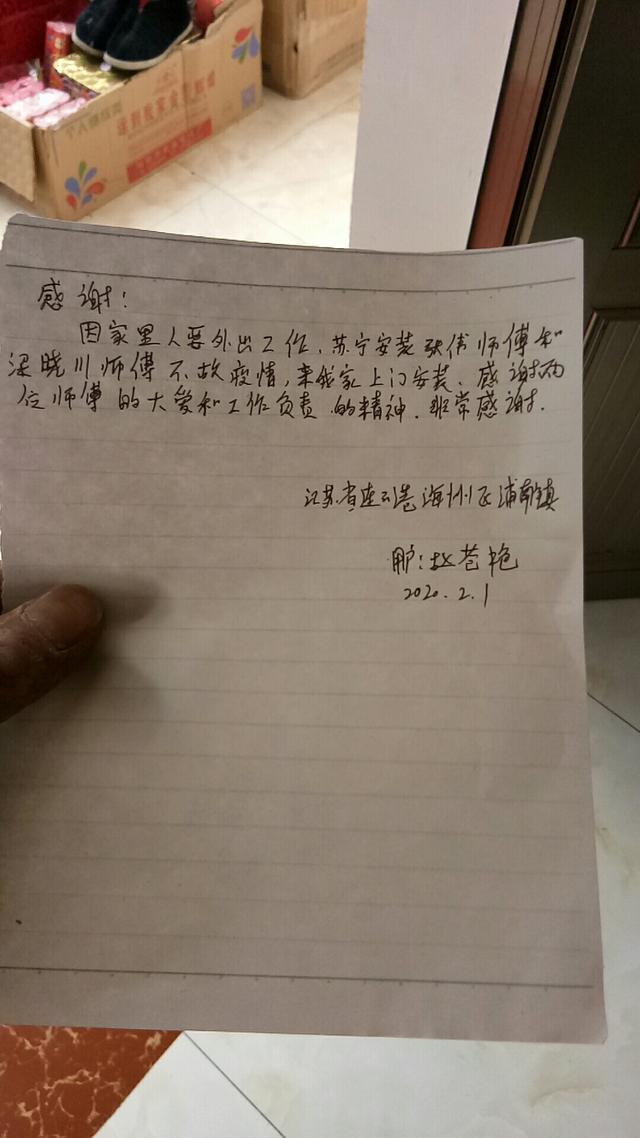 感谢!
因家里人要外出工作,苏宁安装张伟师傅和
梁晓川师傅不故疫情,来我家上门安装、感谢两
位师傅的大爱和工作负责的精神.非常感谢.
江苏省连云港海州区浦南镇
用户:赵苍艳
2020.2.1